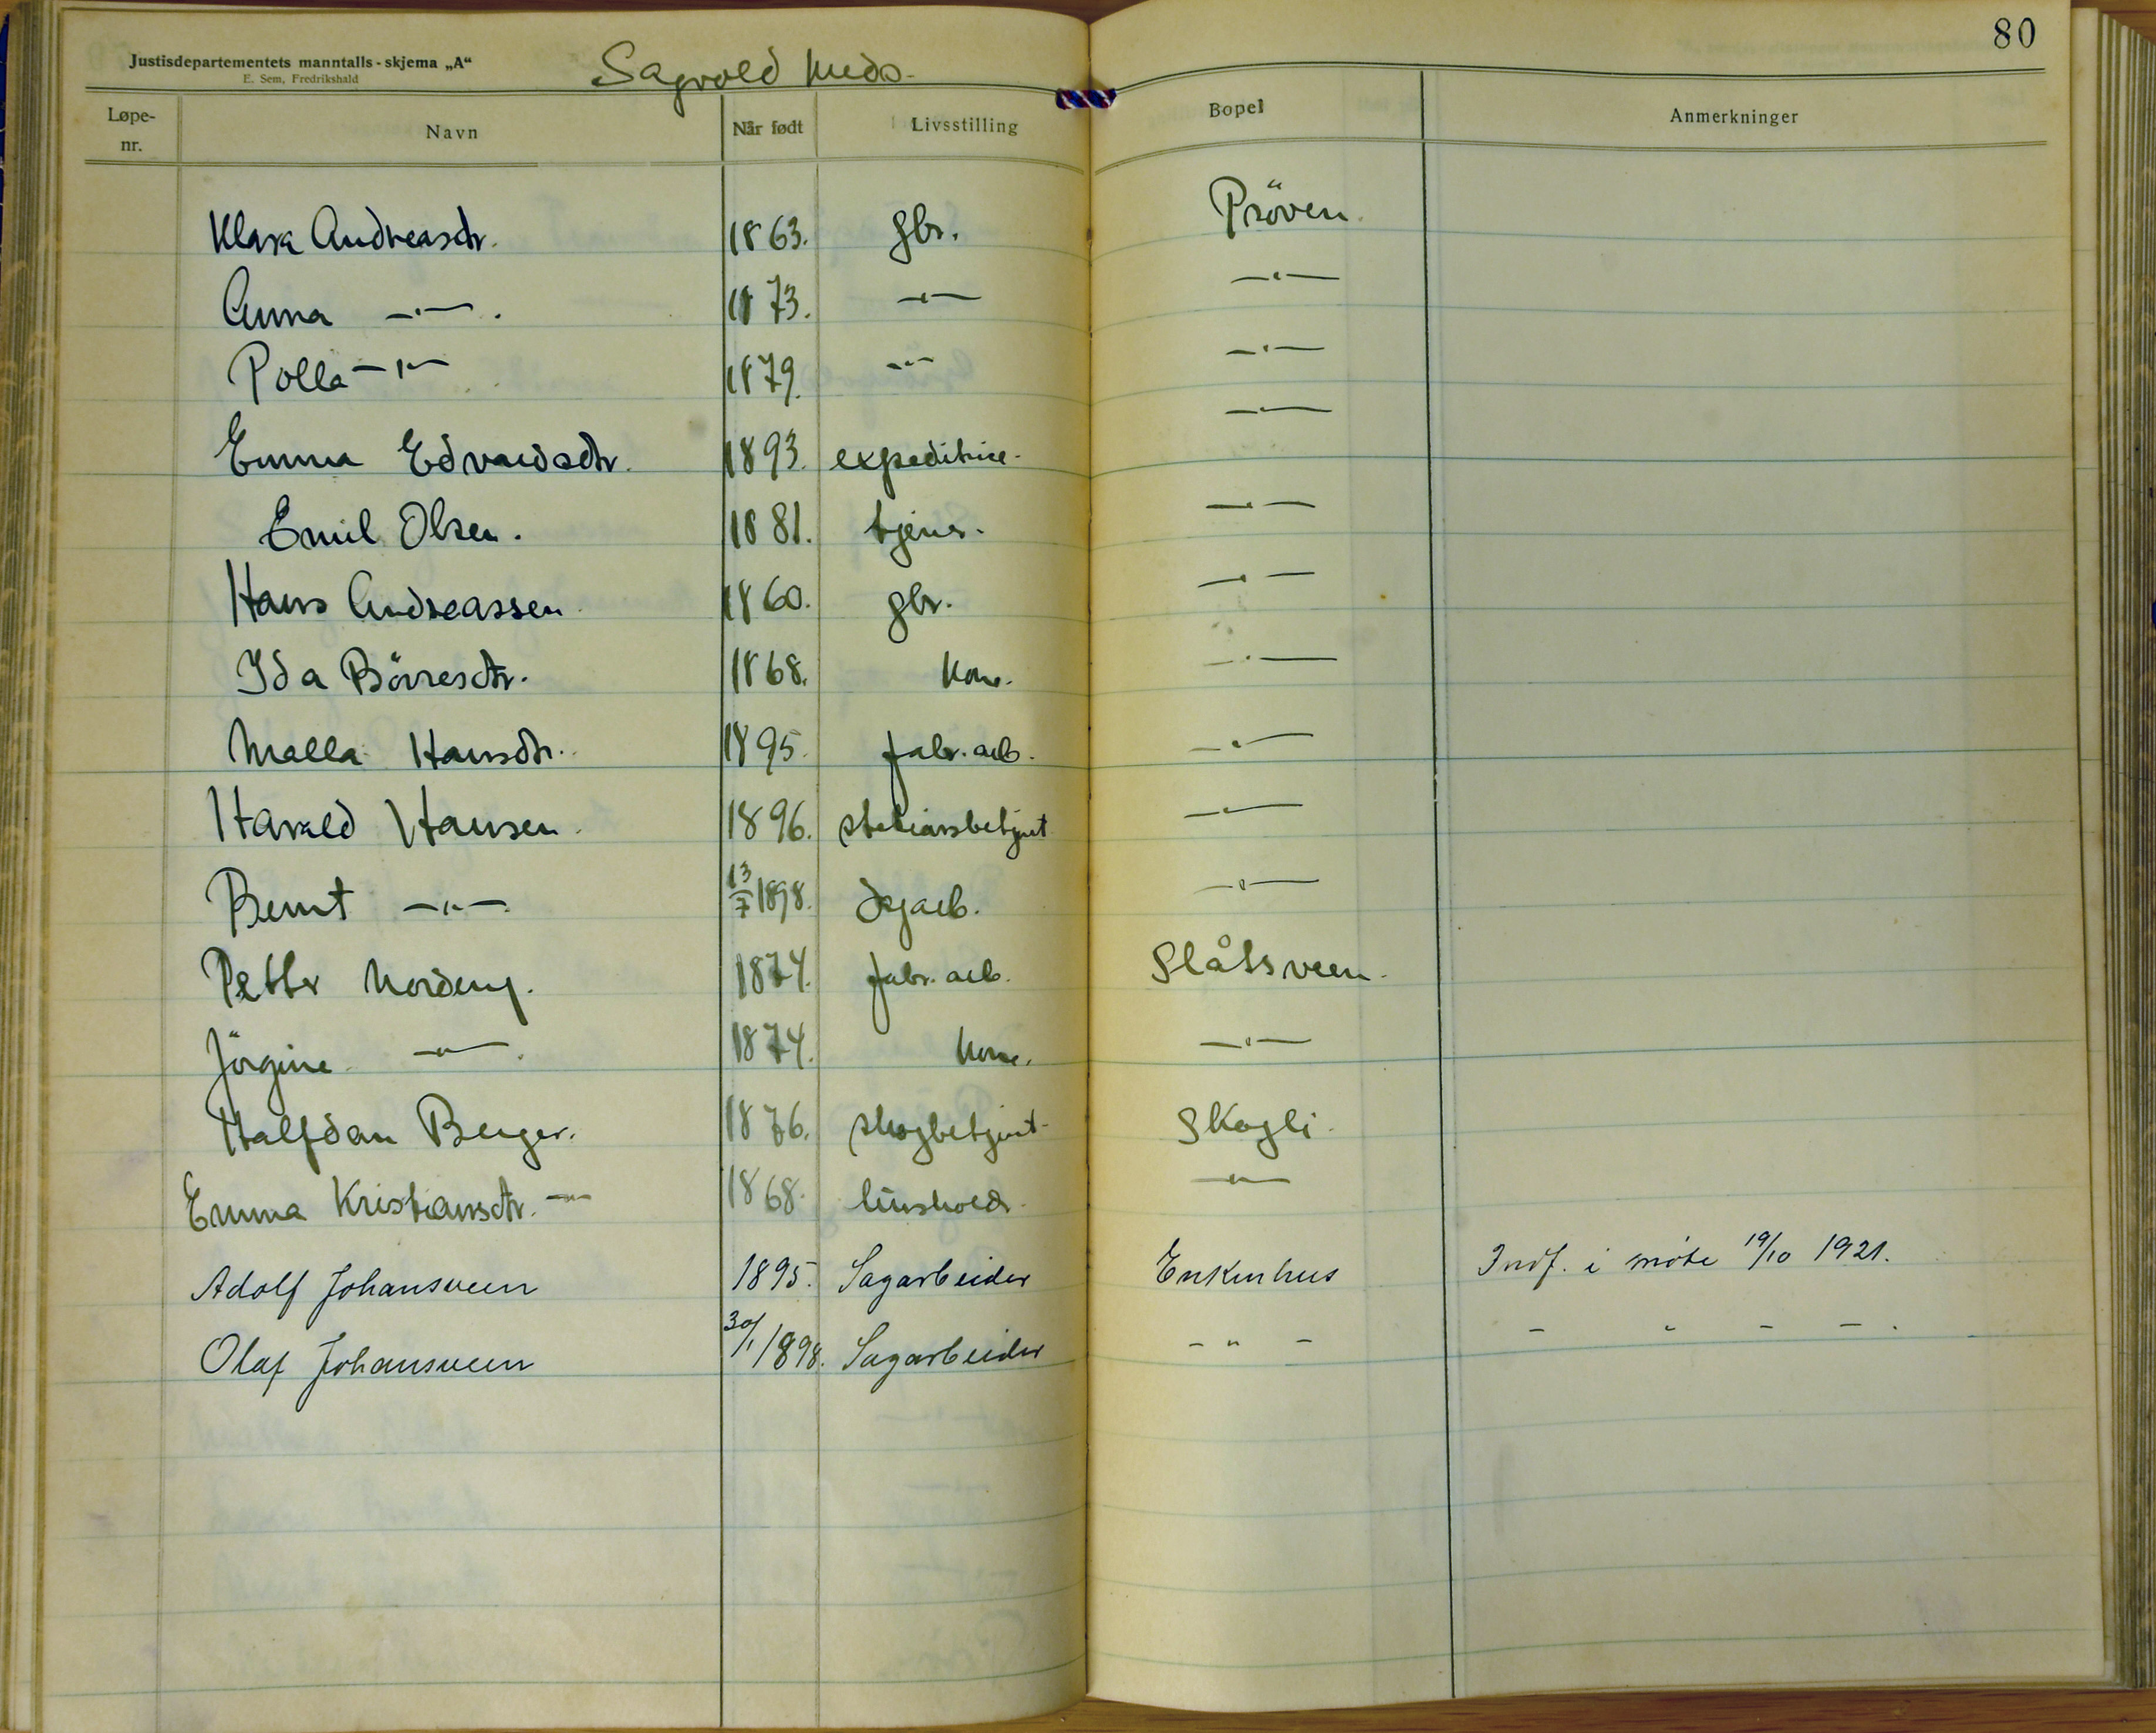 80
Justisdepartementets manntalls-skjema „A“
E. Sem, Fredrikshald
Sagvold
Løpe-nr. Navn Når født Livsstilling Bopel Anmerkninger
Klara Andreasdtr. 1863. gbr. Pröven.
Anna —"—. 1873. —"— —"—
Polla —"— 1879. —"— —"—
Emma Edvardsdtr. 1893. expeditrice. —"—
Emil Olsen. 1881. tjener. —"—
Hans Andreassen 1860. gbr. —"—
Ida Börresdtr. 1868. kone. —"—
Malla Hansdtr. 1895. fabr. arb. —"—
Harald Hansen. 1896. stationsbetjent —"—
Bernt —"— 13/7 1898. dagarb. —"—
Petter Nordeng. 1874. fabr. arb. Slåtsveen.
Jörgine —"—. 1874. kone. —"—
Halfdan Berger. 1876. skogbetjent. Skogli.
Emma Kristiansdtr. —"— 1868. hushold. —"—
Adolf Johansveen 1895. Sagarbeider Enkenhus Indf. i møte 19/10 1921.
Olaf Johansveen 30/1 1898. Sagarbeider - " - - " - - .